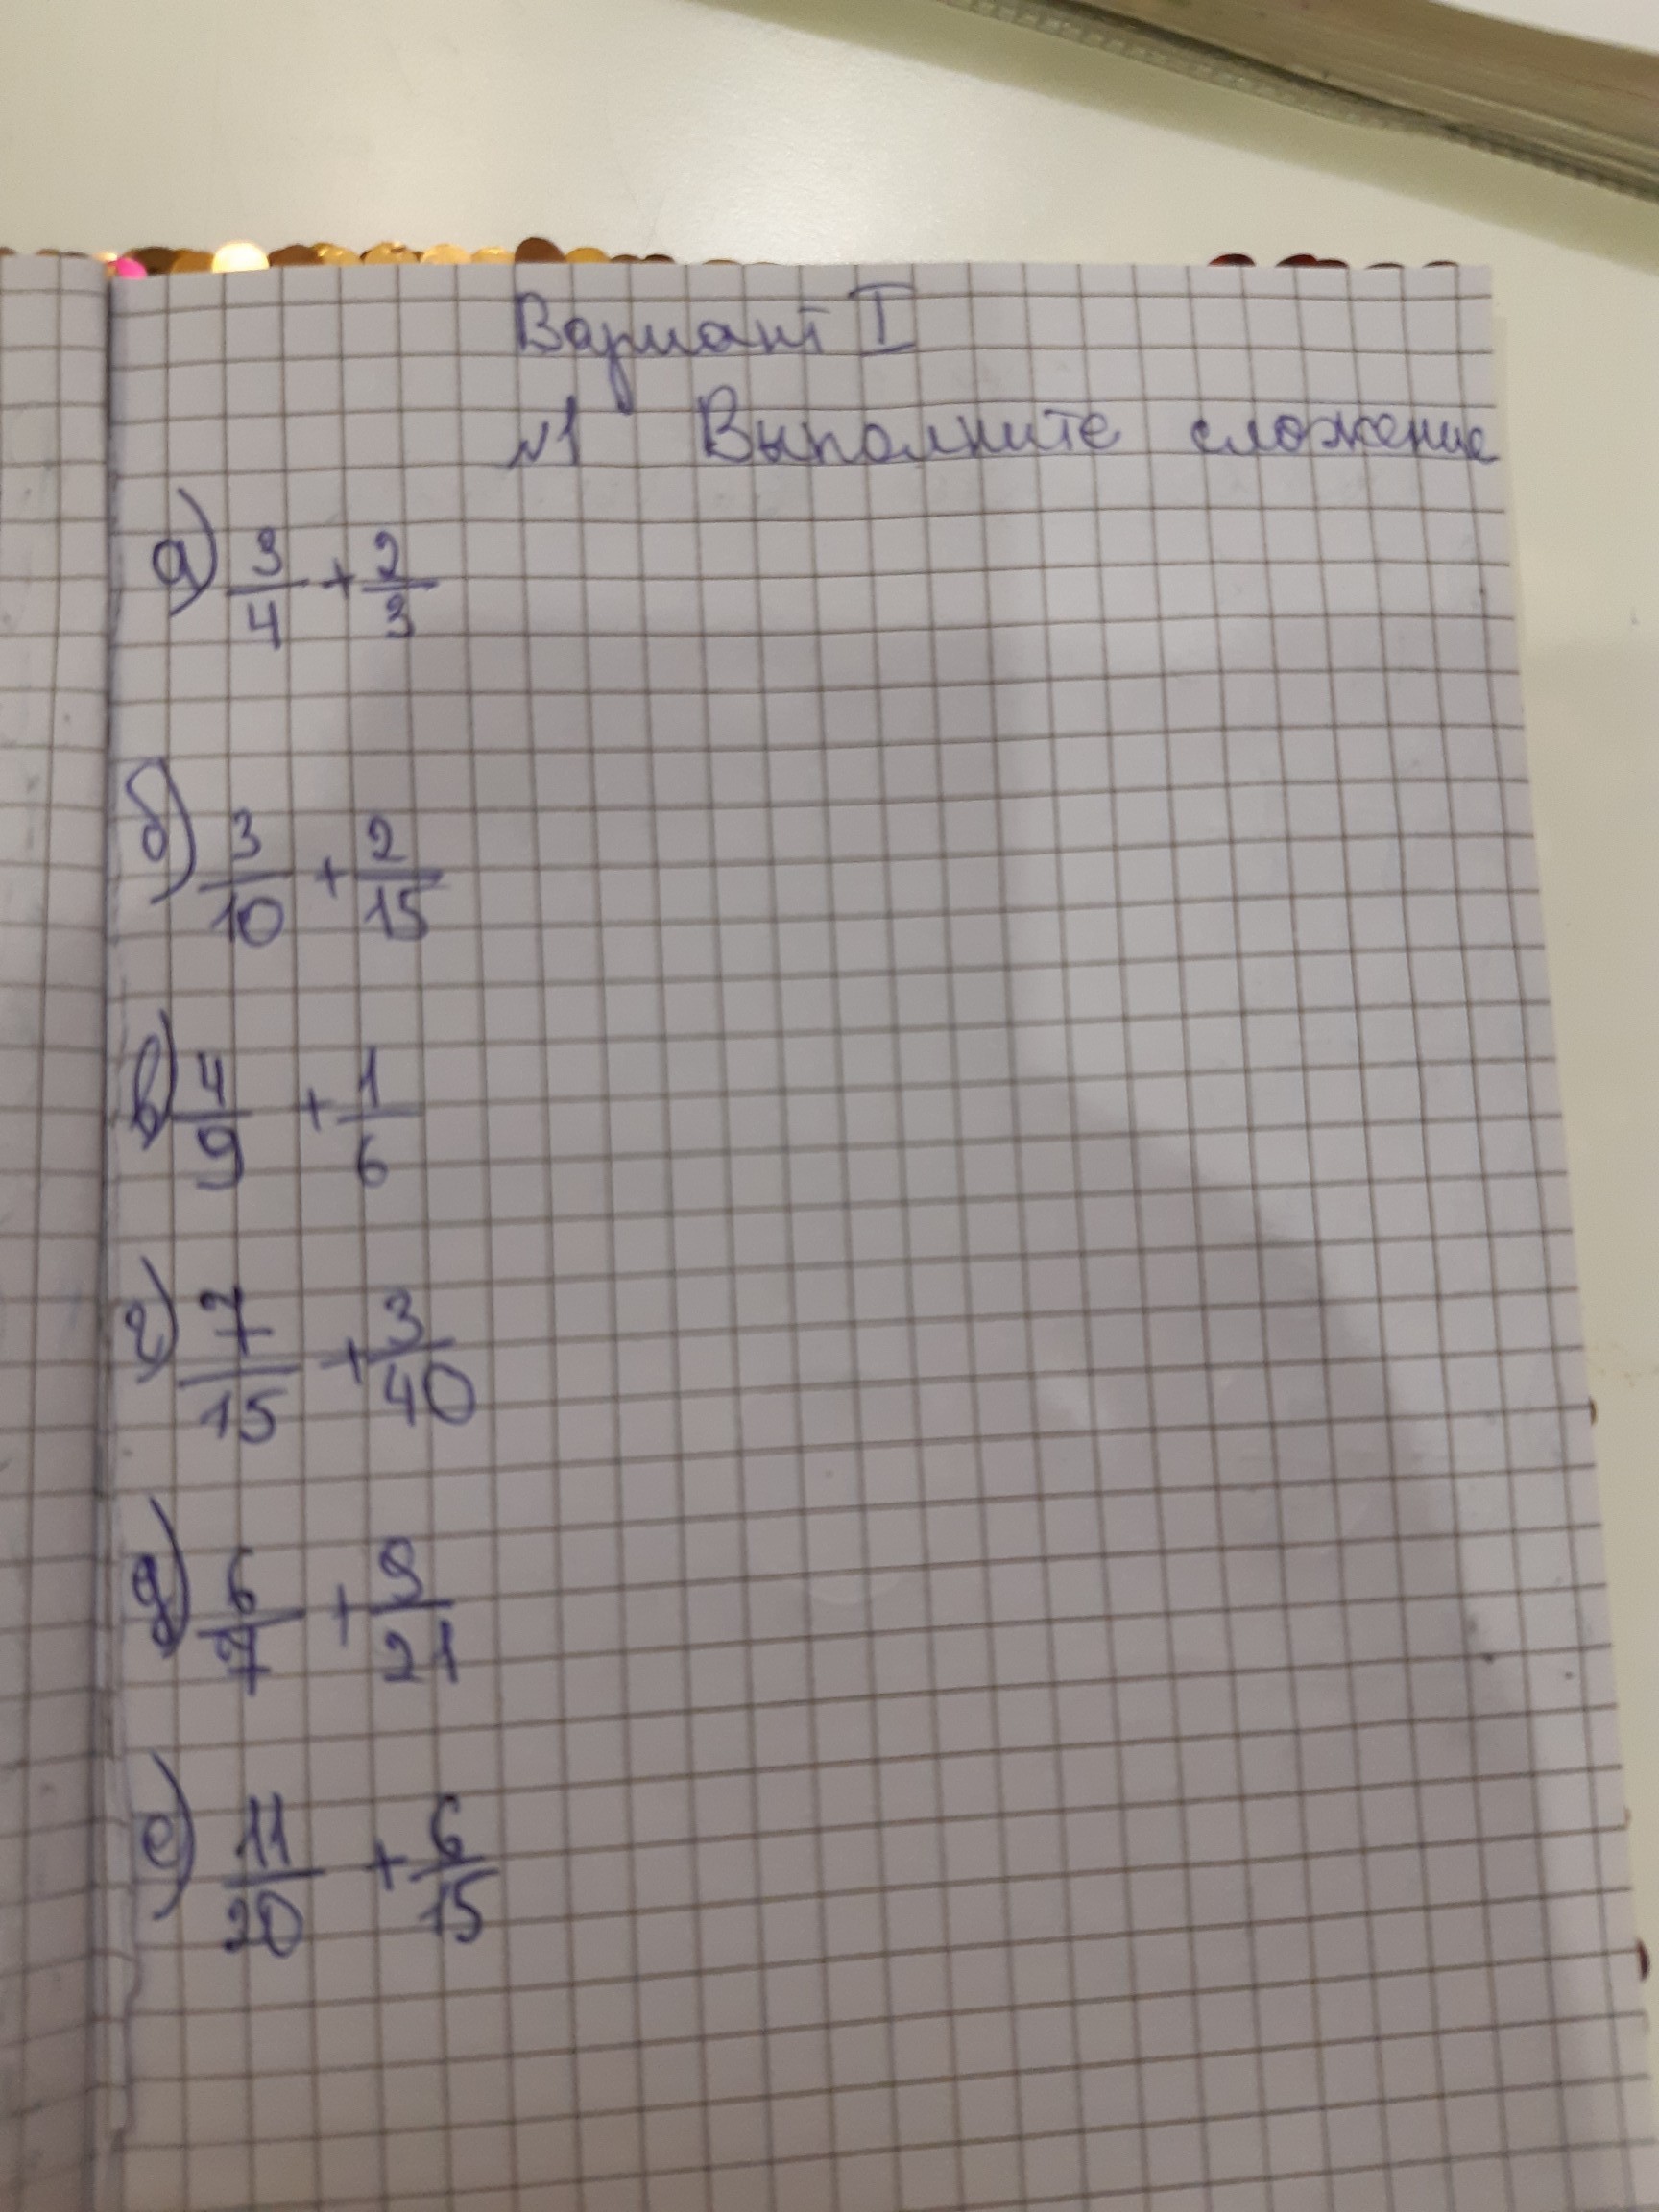 Вариант I
№1 Выполните сложение
а) 3/4 + 2/3
б) 3/10 + 2/15
в) 4/9 + 1/6
г) 7/15 + 3/40
д) 6/7 + 9/21
е) 11/20 + 6/15